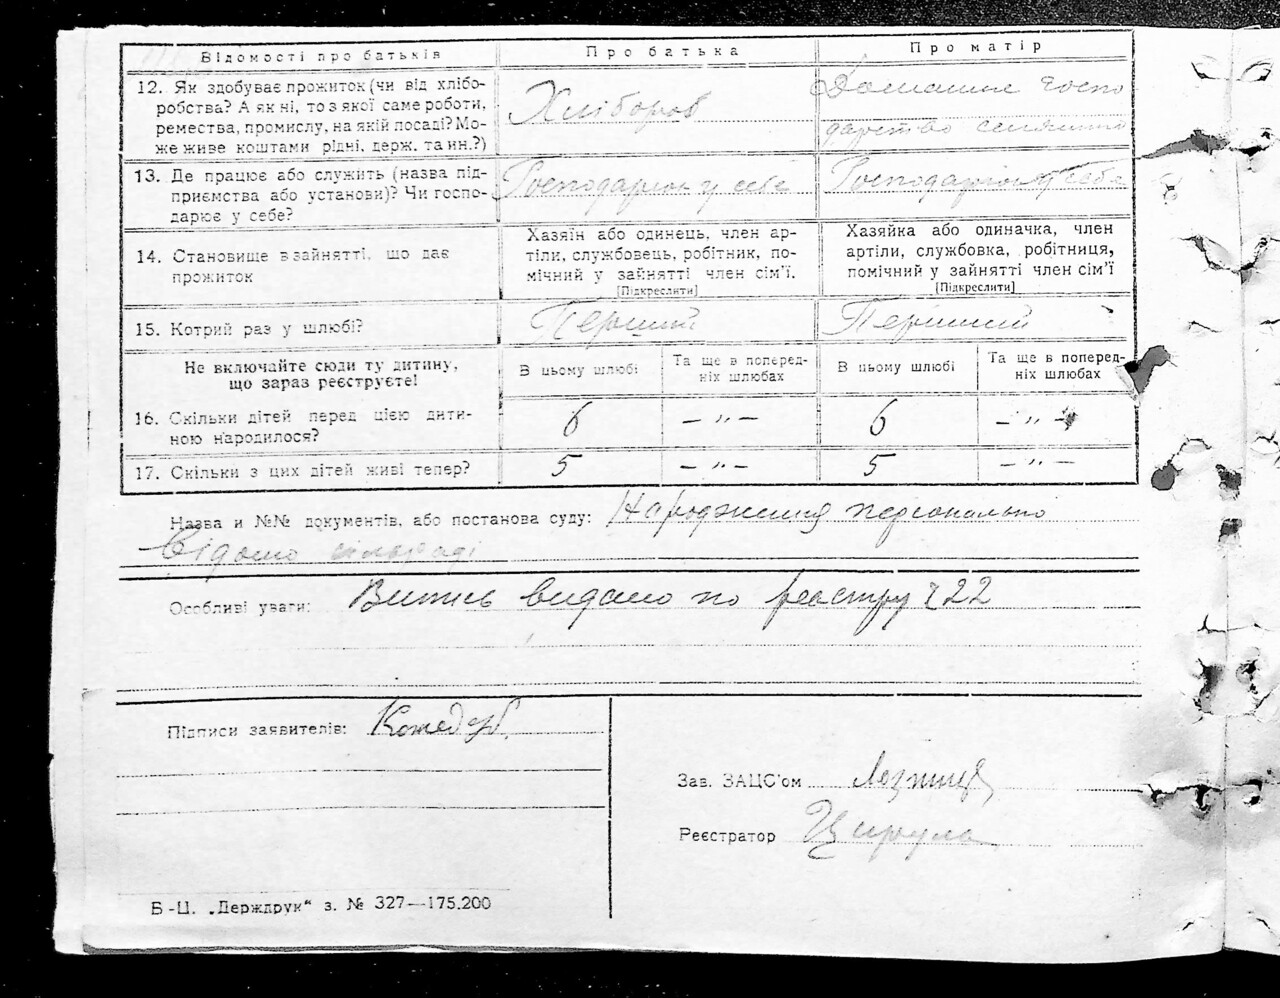 Відомості про батьків
Про батька
Про матір
12. Як здобуває прожиток (чи від хлібо-
робства? А як ні, то з якої саме роботи,
ремества, промислу, на якій посаді? Мо-
же живе коштами рідні, держ. та ин.?)
Хлібороб
Домашнє госпо-
дарство
13. Де працює або служить (назва під-
приємства або установи)? Чи госпо-
дарює у себе?
Господарює у себе
Господарює у себе
14. Становище в зайнятті, що дає
прожиток
Хазяїн або одинець, член ар-
тіли, службовець, робітник, по-
мічний у зайнятті член сім'ї.
[Підкреслити]
Хазяйка або одиначка, член
артіли, службовка, робітниця,
помічний у зайнятті член сім'ї
[Підкреслити]
15. Котрий раз у шлюбі?
Перший
Перший
Не включайте сюди ту дитину,
що зараз реєструєте!
В цьому шлюбі
Та ще в поперед-
ніх шлюбах
В цьому шлюбі
Та ще в поперед-
ніх шлюбах
16. Скільки дітей перед цією дити-
ною народилося?
6 — „ — 6 — „ —
17. Скільки з цих дітей живі тепер?
5 — „ — 5 — „ —
Назва и №№ документів, або постанова суду: Народження персонально
Відомо сільраді
Особливі уваги: Витяг видано по реєстру 22
Підписи заявителів:
Зав. ЗАЦС'ом
Реєстратор
Б-Ц. „Держдрук“ з. № 327—175.200